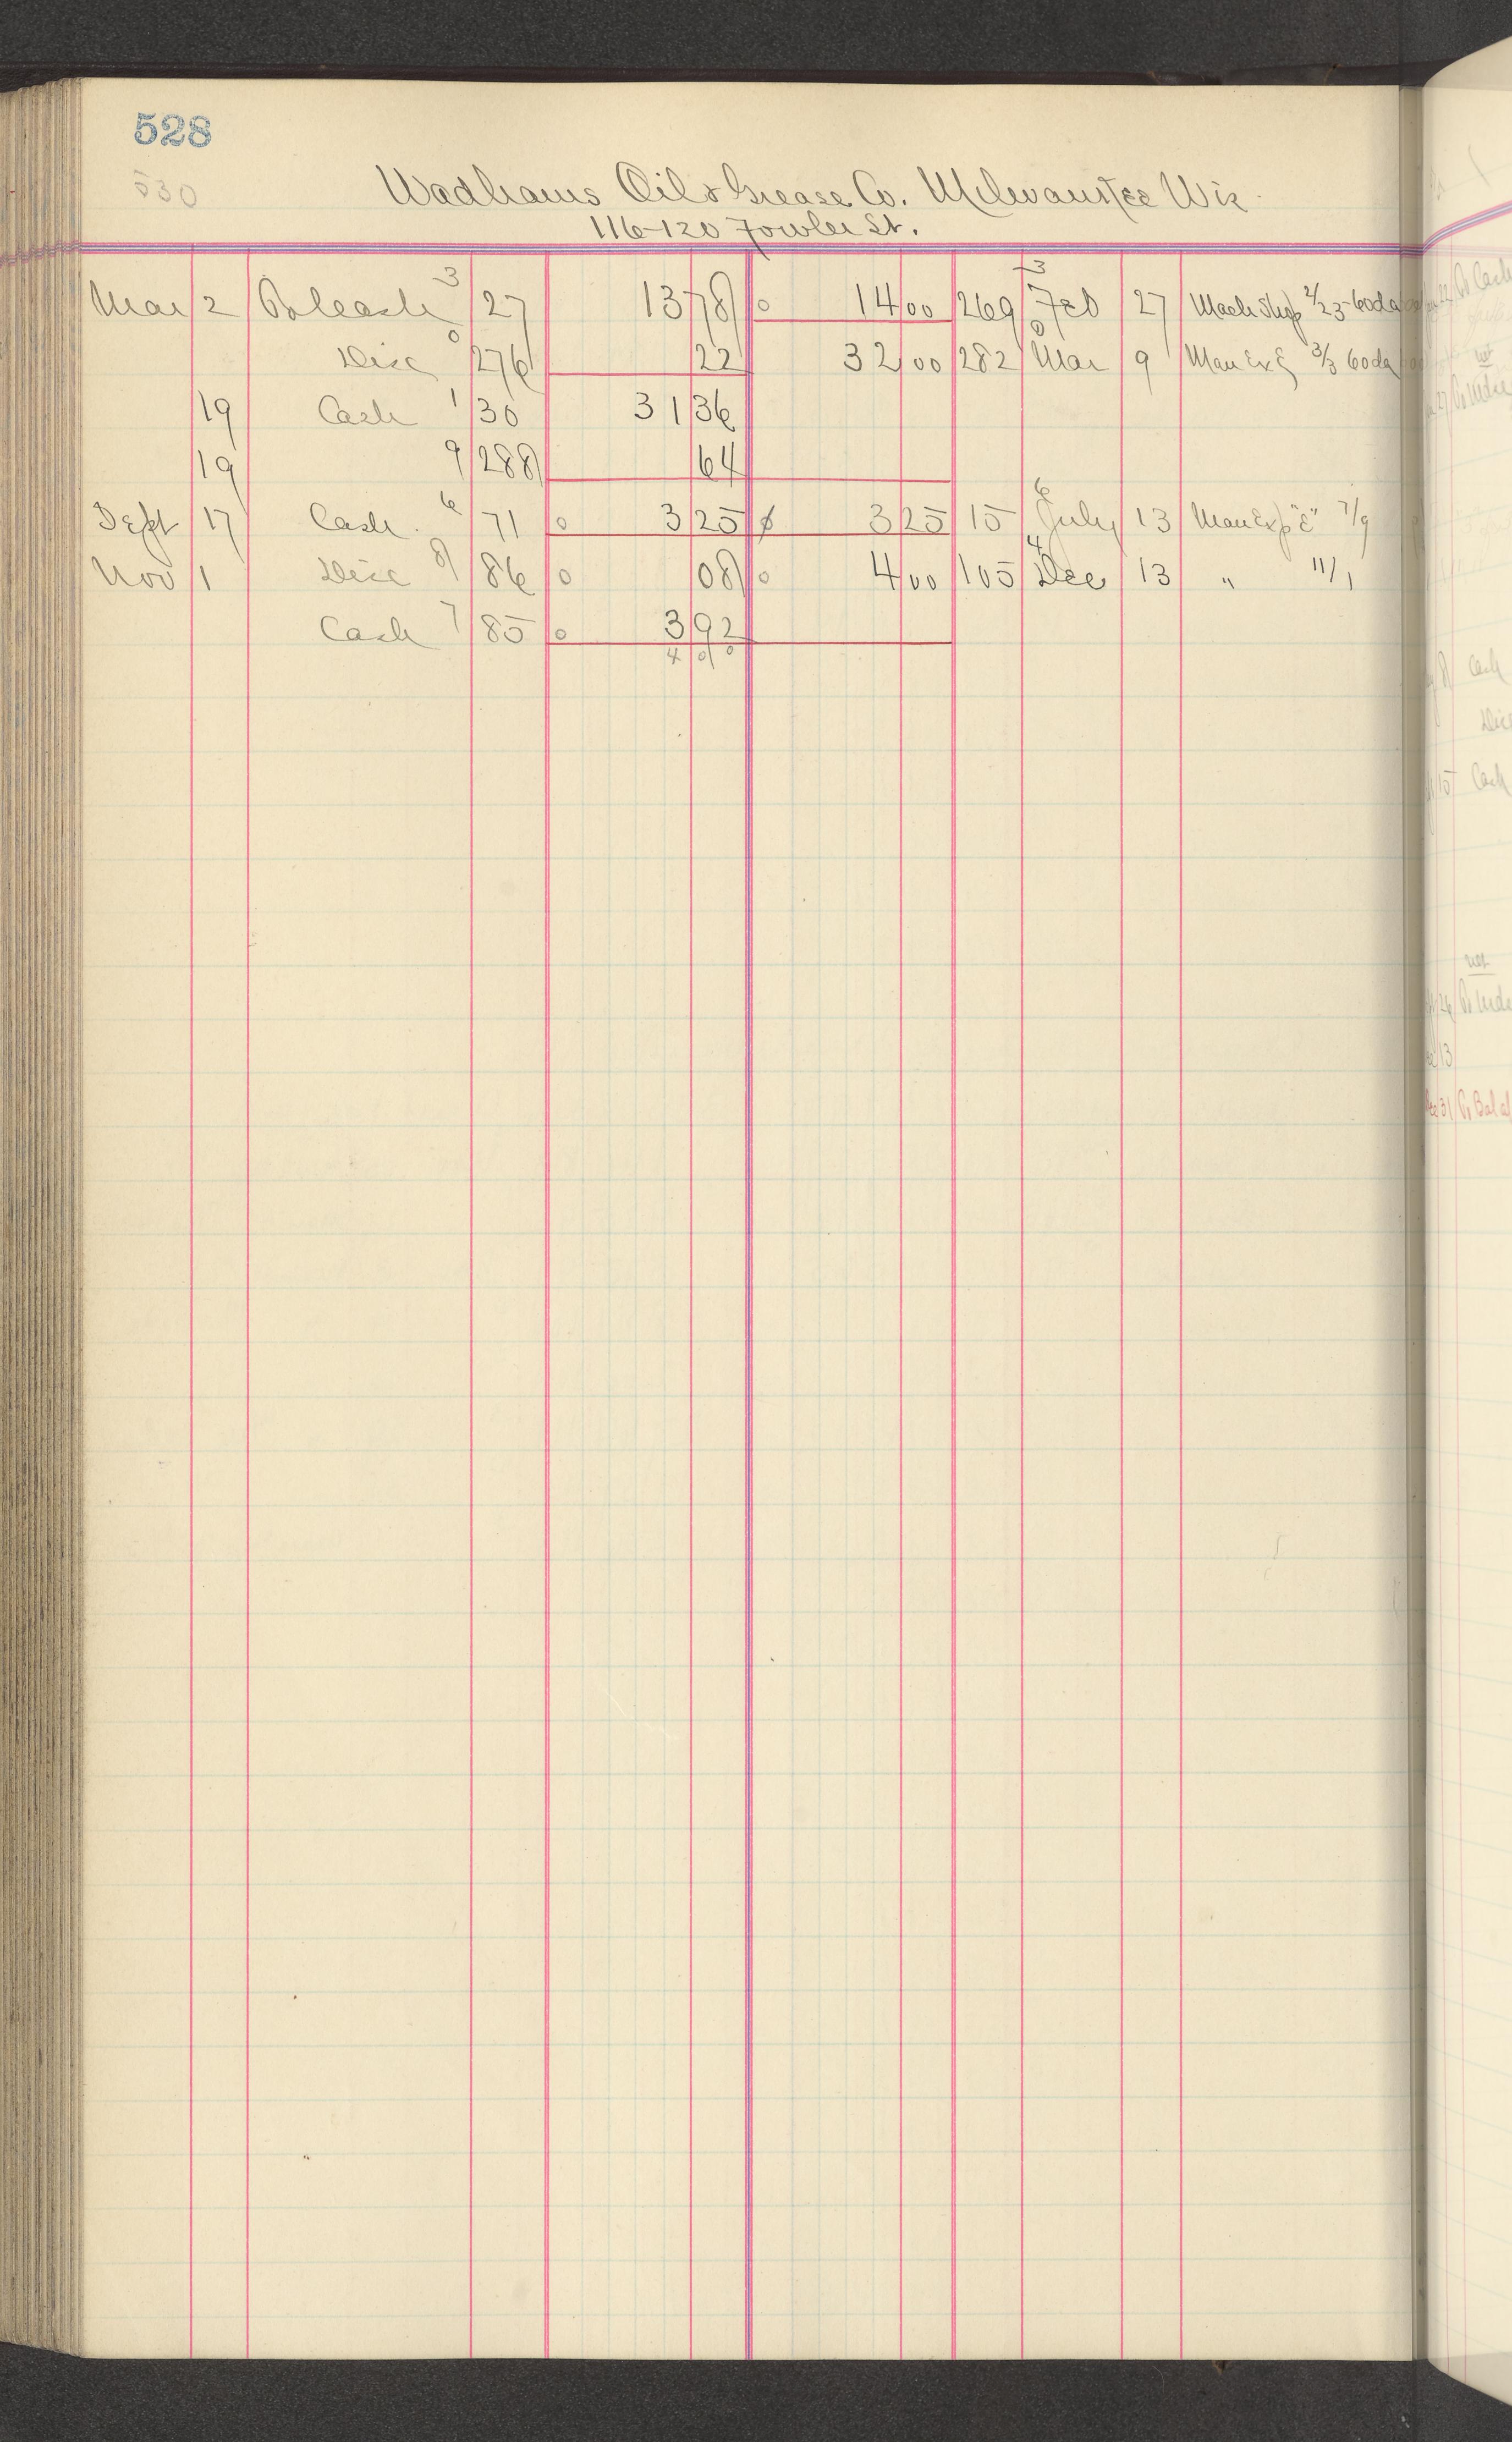 528
530
Wadhams Oil & Grease Co. Milwaukee Wis.
116-120 Fowler St.
Mar 2 To Cash 3 27 13 78 0 14 00 269 3 Feb 27 Mach Shop 2/23-60da
Disc 0 276 22 32 00 282 0 Mar 9 Man Ex E 3/3 60da
19 Cash 1 30 31 36
19 9 288 64
Sept 17 Cash. 6 71 0 3 25 0 3 25 15 6 July 13 Man Exp "E" 7/9
Nov 1 Disc 8 86 0 08 0 4 00 105 4 Dec 13 " 11/1
Cash 7 85 0 3 92
4 00
To Cash
net
Cash
Disc
15 Cash
net
26 To Mdse
13
31 To Bal